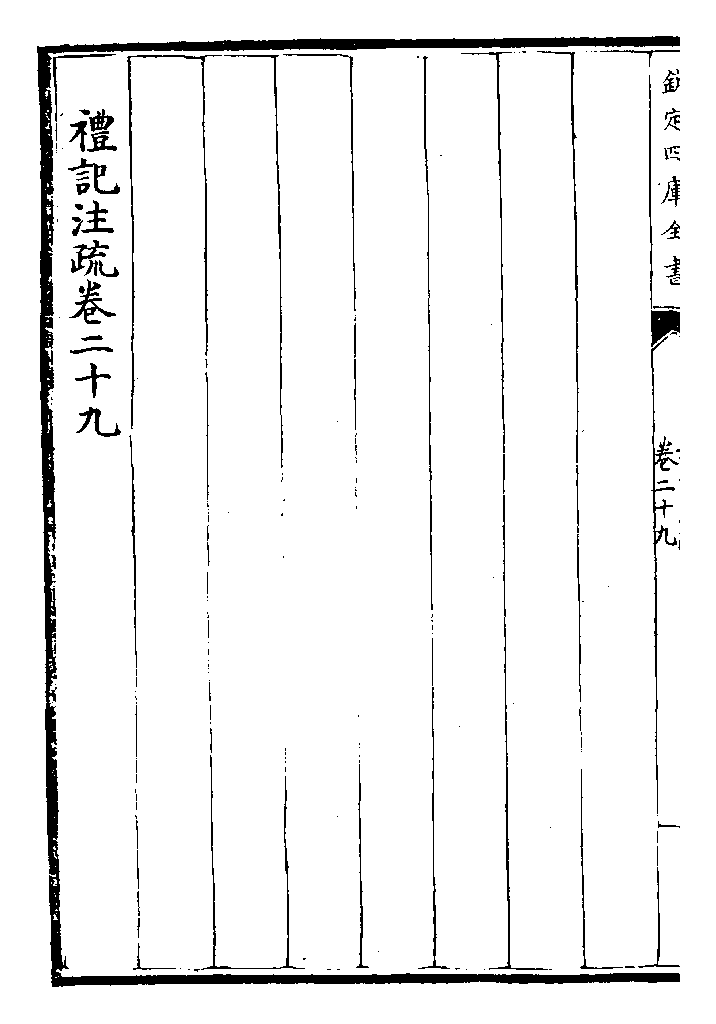 欽定四庫全書
卷二十九
禮記注疏卷二十九